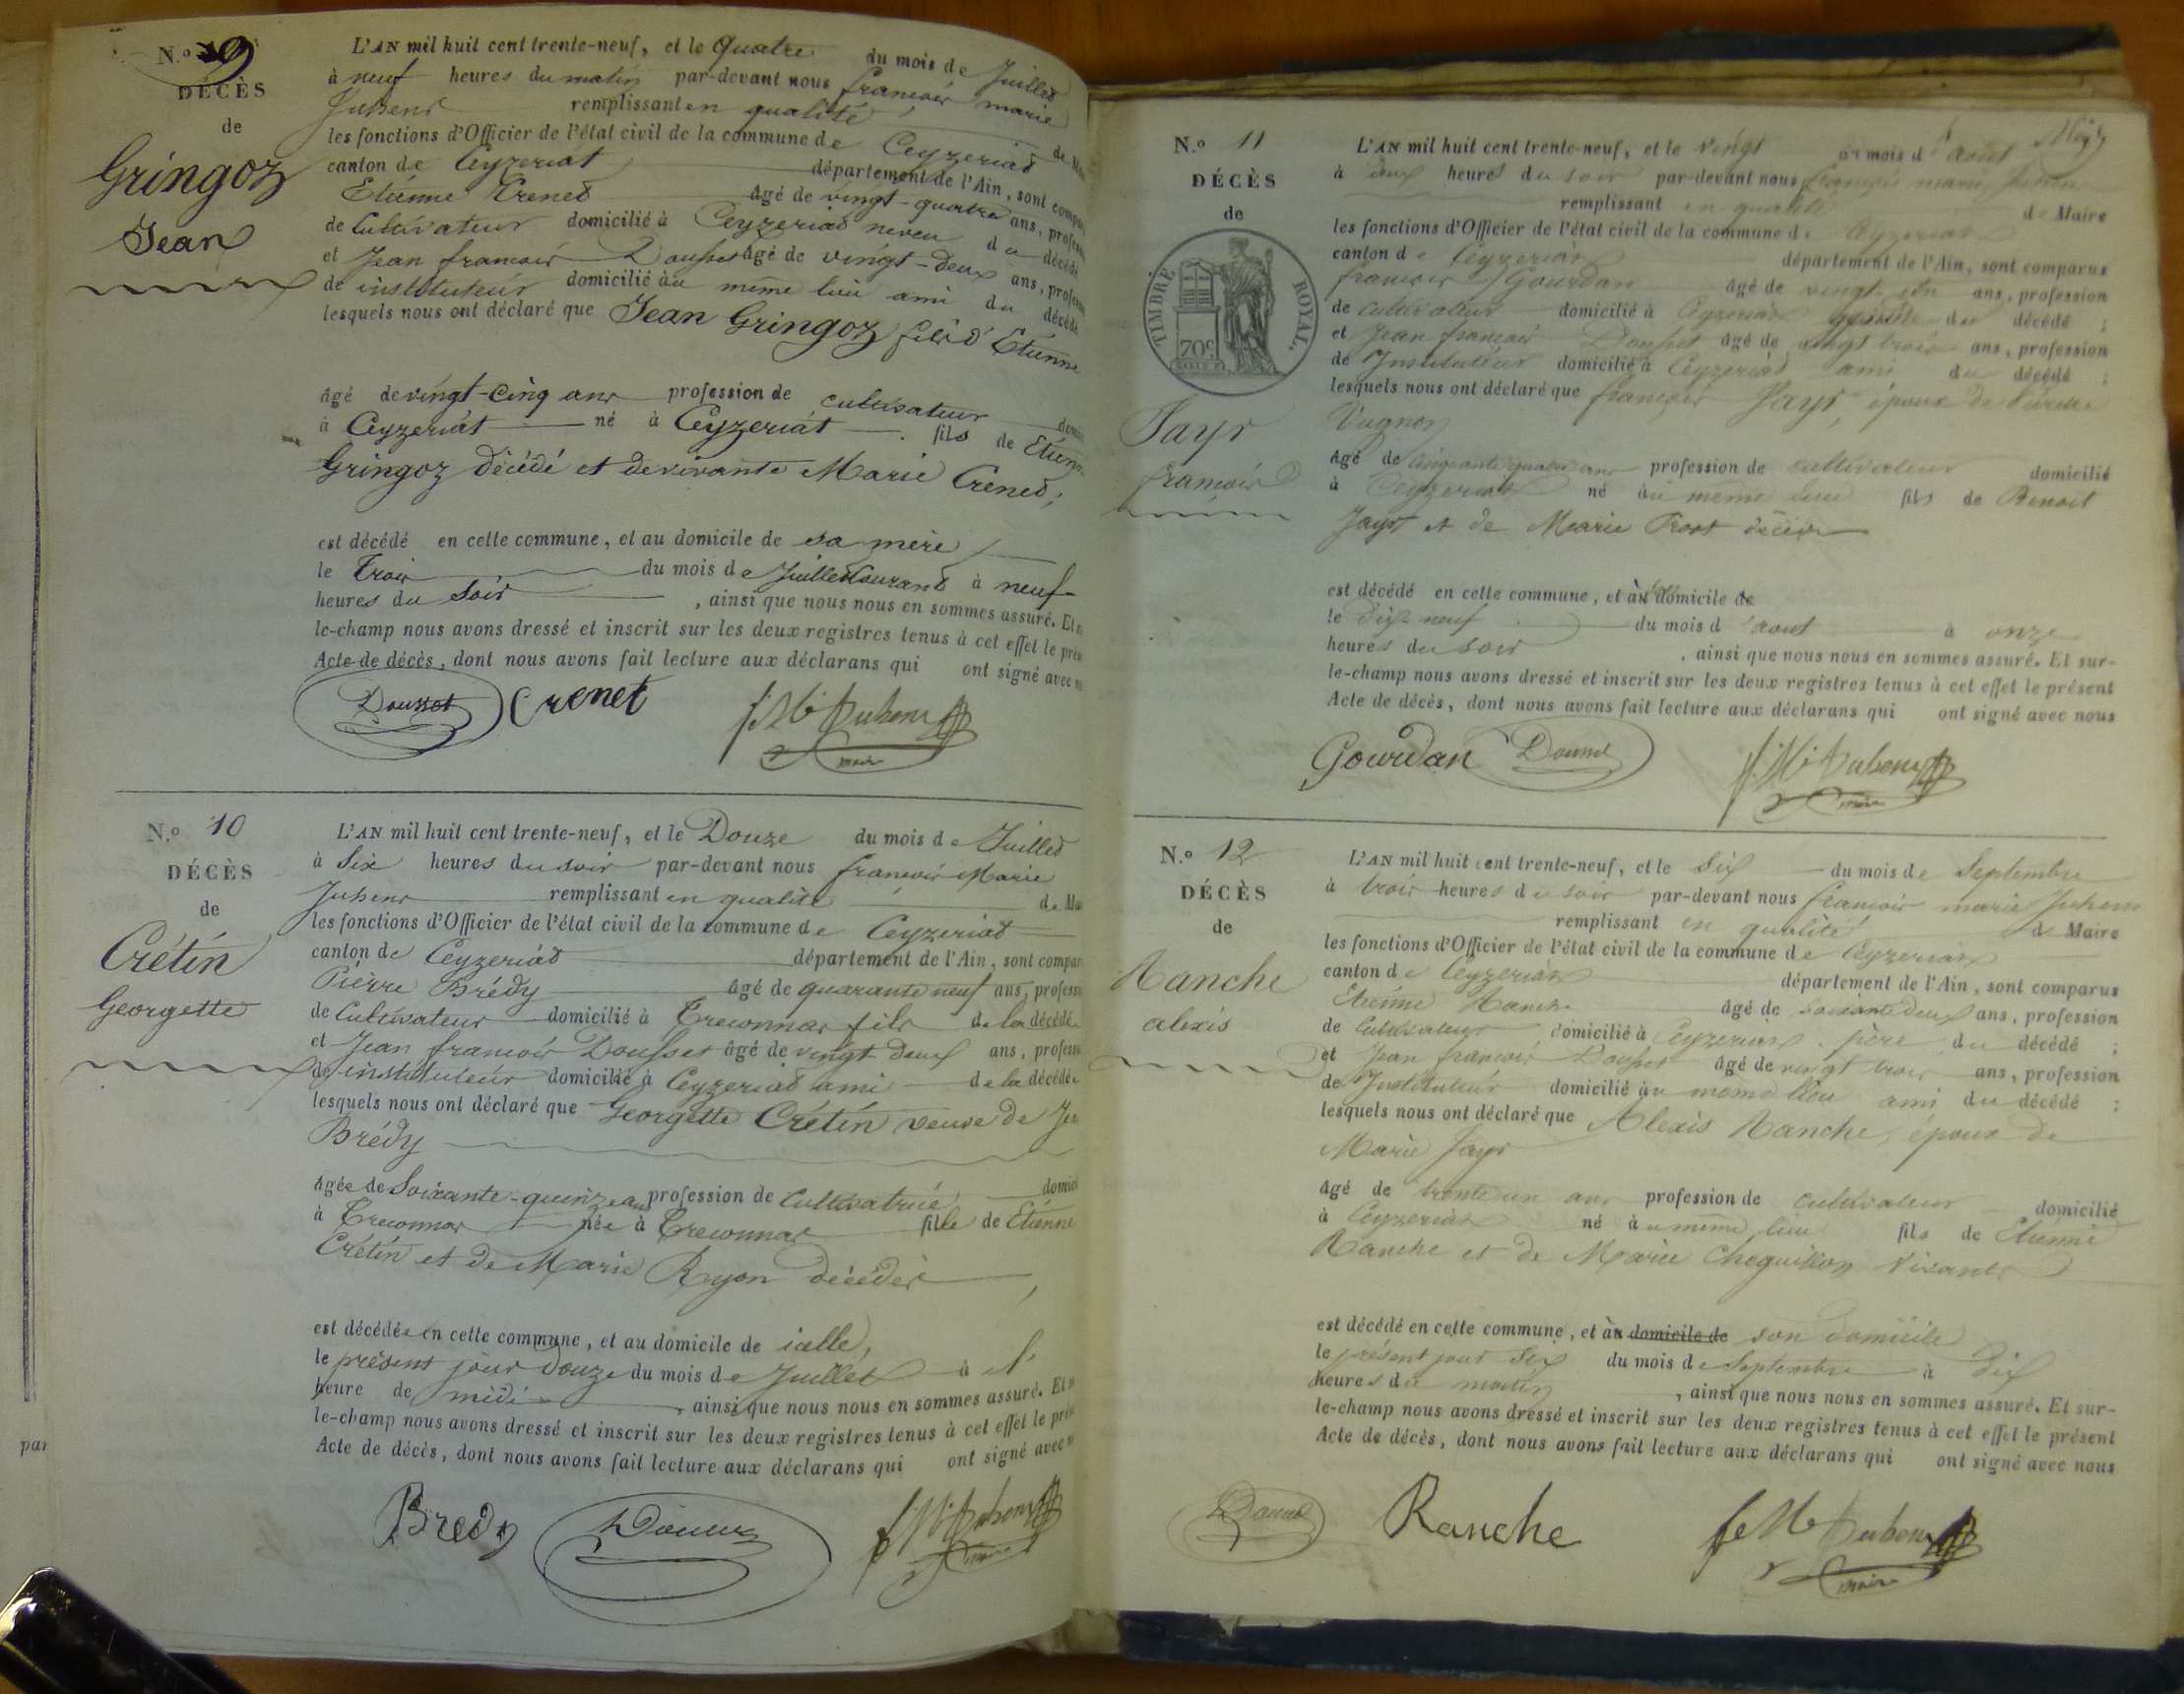 N.o 9
DÉCÈS
de
Gringoz
Jean
L'AN mil huit cent trente-neuf, et le quatre du mois de Juillet
à neuf heures du matin par-devant nous françois marie
remplissant en qualité de
les fonctions d'Officier de l'état civil de la commune de Ceyzeriat
canton de Ceyzeriat département de l'Ain, sont
Etienne Crenet âgé de vingt-quatre ans,
de Cultivateur domicilié à Ceyzeriat neveu du décédé
et Jean françois Dousset âgé de vingt-deux ans,
de instituteur domicilié au même lieu ami du décédé
lesquels nous ont déclaré que Jean Gringoz fils d'Etienne
âgé de vingt-cinq ans profession de cultivateur
à Ceyzeriat né à Ceyzeriat fils de
Gringoz décédé et de vivante Marie Crenet;
est décédé en cette commune, et au domicile de sa mère
le trois du mois de Juillet Courant à neuf
heures du soir, ainsi que nous nous en sommes assuré. Et
le-champ nous avons dressé et inscrit sur les deux registres tenus à cet effet le
Acte de décès, dont nous avons fait lecture aux déclarans qui ont signé avec
Dousset Crenet
maire
N.o 10
DÉCÈS
de
Crétin
Georgette
L'AN mil huit cent trente-neuf, et le Douze du mois de Juillet
à Six heures du soir par-devant nous françois Marie
remplissant en qualité de
les fonctions d'Officier de l'état civil de la commune de Ceyzeriat
canton de Ceyzeriat département de l'Ain, sont
Pierre Brédy âgé de quarante neuf ans,
de Cultivateur domicilié à fils de la décédée
et Jean françois Dousset âgé de vingt deux ans,
de instituteur domicilié à Ceyzeriat ami de la décédée
lesquels nous ont déclaré que Georgette Crétin veuve de
Brédy
âgée de Soixante-quinze ans profession de Cultivatrice
à née à fille de Etienne
Crétin et de Marie Ryon décédés
est décédée en cette commune, et au domicile de icelle,
le présent jour Douze du mois de Juillet à l'
heure de midi, ainsi que nous nous en sommes assuré. Et
le-champ nous avons dressé et inscrit sur les deux registres tenus à cet effet le
Acte de décès, dont nous avons fait lecture aux déclarans qui ont signé avec
Bredy
par
N.o 11
DÉCÈS
de
TIMBRE ROYAL.
70c
Jayr
françois
L'AN mil huit cent trente-neuf, et le vingt du mois d'août
à Deux heures du soir par-devant nous françois marie
remplissant en qualité de Maire
les fonctions d'Officier de l'état civil de la commune de Ceyzeriat
canton de Ceyzeriat département de l'Ain, sont comparus
françois Gourdan âgé de vingt un ans, profession
de cultivateur domicilié à Ceyzeriat du décédé ;
et Jean françois Dousset âgé de vingt trois ans, profession
de Instituteur domicilié à Ceyzeriat ami du décédé ;
lesquels nous ont déclaré que françois Jayr, époux de
âgé de cinquante quatre ans profession de cultivateur domicilié
à Ceyzeriat né au même lieu fils de Benoit
Jayr et de Marie
est décédé en cette commune, et au domicile de
le Dix neuf du mois d'août à onze
heures du soir, ainsi que nous nous en sommes assuré. Et sur-
le-champ nous avons dressé et inscrit sur les deux registres tenus à cet effet le présent
Acte de décès, dont nous avons fait lecture aux déclarans qui ont signé avec nous
Gourdan
maire
N.o 12
DÉCÈS
de
Ranche
alexis
L'AN mil huit cent trente-neuf, et le Six du mois de Septembre
à trois heures du soir par-devant nous françois marie
remplissant en qualité de Maire
les fonctions d'Officier de l'état civil de la commune de Ceyzeriat
canton de Ceyzeriat département de l'Ain, sont comparus
Etienne Ranche âgé de soixante deux ans, profession
de Cultivateur domicilié à Ceyzeriat père du décédé ;
et Jean françois Dousset âgé de vingt trois ans, profession
de Instituteur domicilié au même lieu ami du décédé ;
lesquels nous ont déclaré que Alexis Ranche, époux de
Marie Jayr
âgé de trente un ans profession de cultivateur domicilié
à Ceyzeriat né au même lieu fils de Etienne
Ranche et de Marie vivants
est décédé en cette commune, et au domicile de son domicile
le présent jour Six du mois de Septembre à dix
heures du matin, ainsi que nous nous en sommes assuré. Et sur-
le-champ nous avons dressé et inscrit sur les deux registres tenus à cet effet le présent
Acte de décès, dont nous avons fait lecture aux déclarans qui ont signé avec nous
Ranche
maire